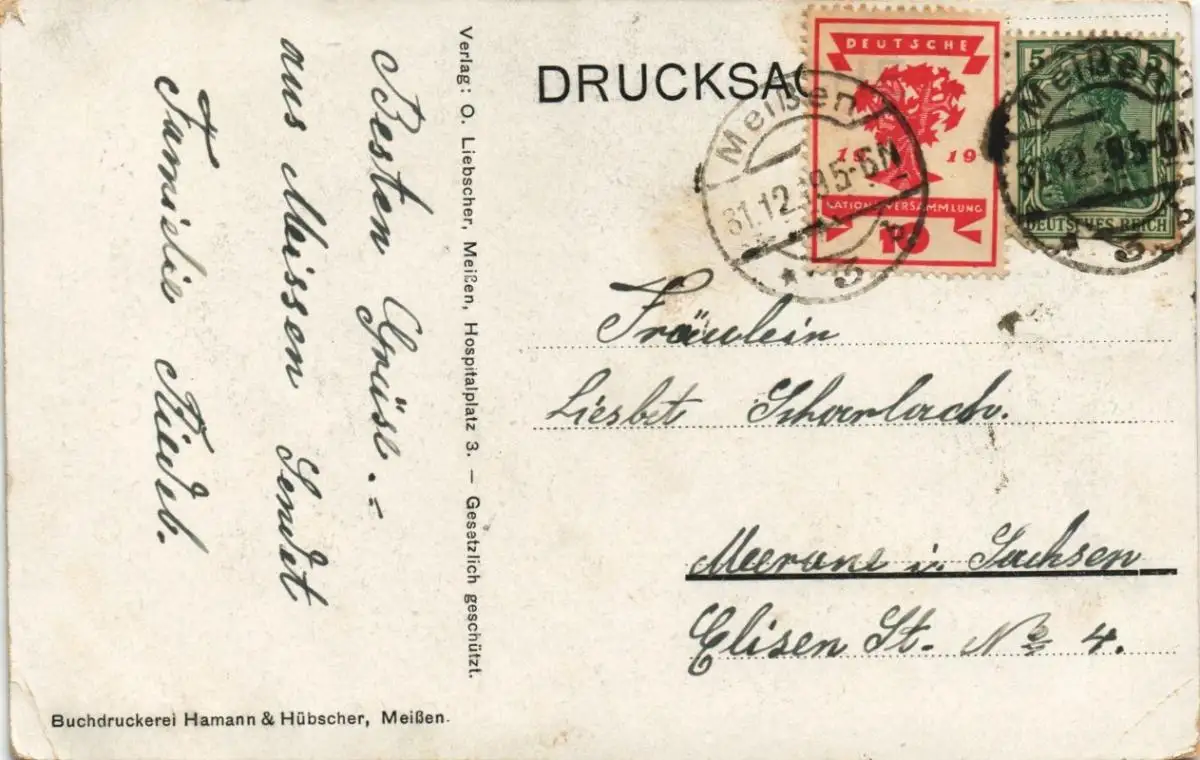 DRUCKSAC
DEUTSCHE
1919
NATIONALVERSAMMLUNG
10
5 5
DEUTSCHES REICH
Meißen
31.12.19 5-6N
* 3 b
Meißen
31.12.19 5-6N
* 3 b
Besten Grüße.-
aus Meissen Sendet
Familie
Verlag: O. Liebscher, Meißen, Hospitalplatz 3. – Gesetzlich geschützt.
Fräulein
Liesbet Scharlach.
Meerane in Sachsen
Elisen St. No 4.
Buchdruckerei Hamann & Hübscher, Meißen.